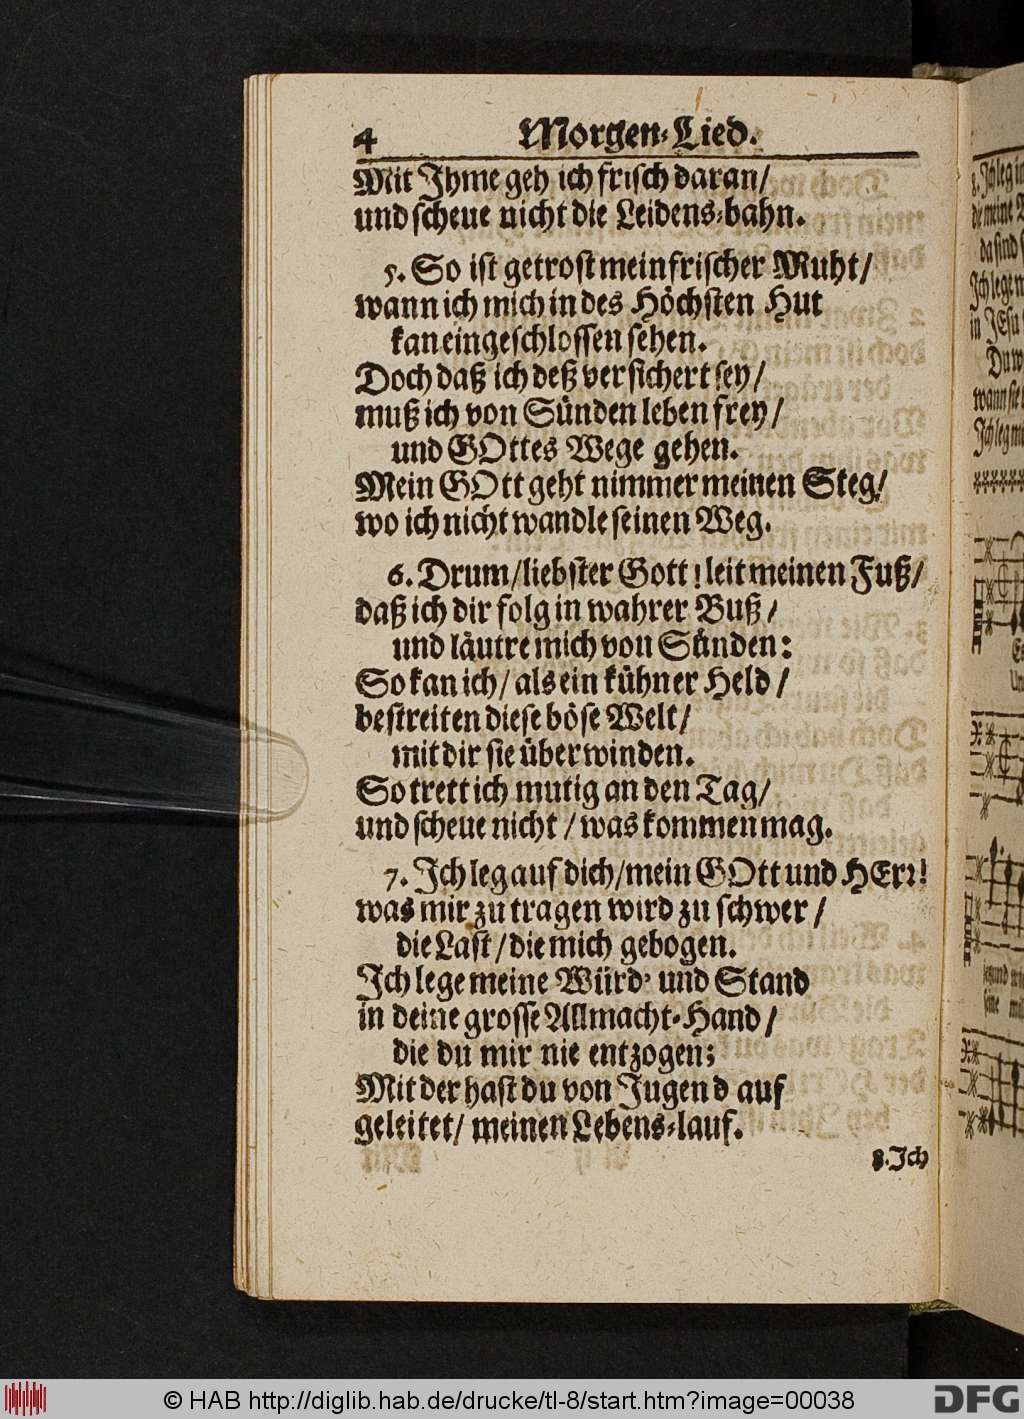 4 Morgen-Lied.
Mit Jhme geh ich frisch daran/
und scheue nicht die Leidens-bahn.
5. So ist getrost mein frischer Muht/
wann ich mich in des Höchsten Hut
kan eingeschlossen sehen.
Doch daß ich deß versichert sey/
muß ich von Sünden leben frey/
und GOttes Wege gehen.
Mein GOtt geht nimmer meinen Steg/
wo ich nicht wandle seinen Weg.
6. Drum/ liebster Gott! leit meinen Fuß/
daß ich dir folg in wahrer Buß/
und läutre mich von Sünden:
So kan ich/ als ein kühner Held/
bestreiten diese böse Welt/
mit dir sie überwinden.
So trett ich mutig an den Tag/
und scheue nicht/ was kommen mag.
7. Jch leg auf dich/ mein GOtt und HErr!
was mir zu tragen wird zu schwer/
die Last/ die mich gebogen.
Jch lege meine Würd- und Stand
in deine grosse Allmacht-Hand/
die du mir nie entzogen;
Mit der hast du von Jugend auf
geleitet/ meinen Lebens-lauf.
8. Jch
© HAB http://diglib.hab.de/drucke/tl-8/start.htm?image=00038
DFG